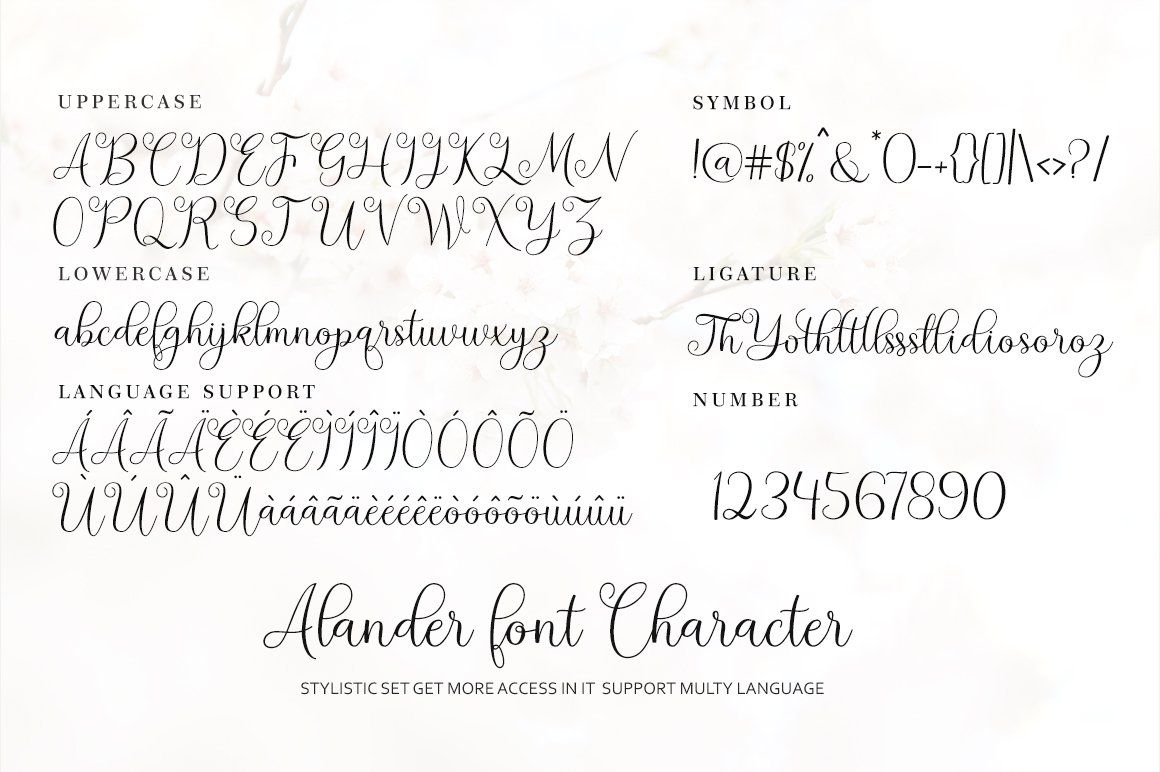 UPPERCASE
ABCDEFGHIJKLMN
OPQRSTUVWXYZ
LOWERCASE
abcdefghijklmnopqrstuvwxyz
LANGUAGE SUPPORT
ÁÂÃÄÈÉËÌÍÎÏÒÓÔÕÖ
ÙÚÛÜàáâãäèéêëòóôõöùúûü
SYMBOL
!@#$%^&*()-+{}[]|\<>?/
LIGATURE
ThYothttllssstlidiosoroz
NUMBER
1234567890
Alander font Character
STYLISTIC SET GET MORE ACCESS IN IT SUPPORT MULTY LANGUAGE